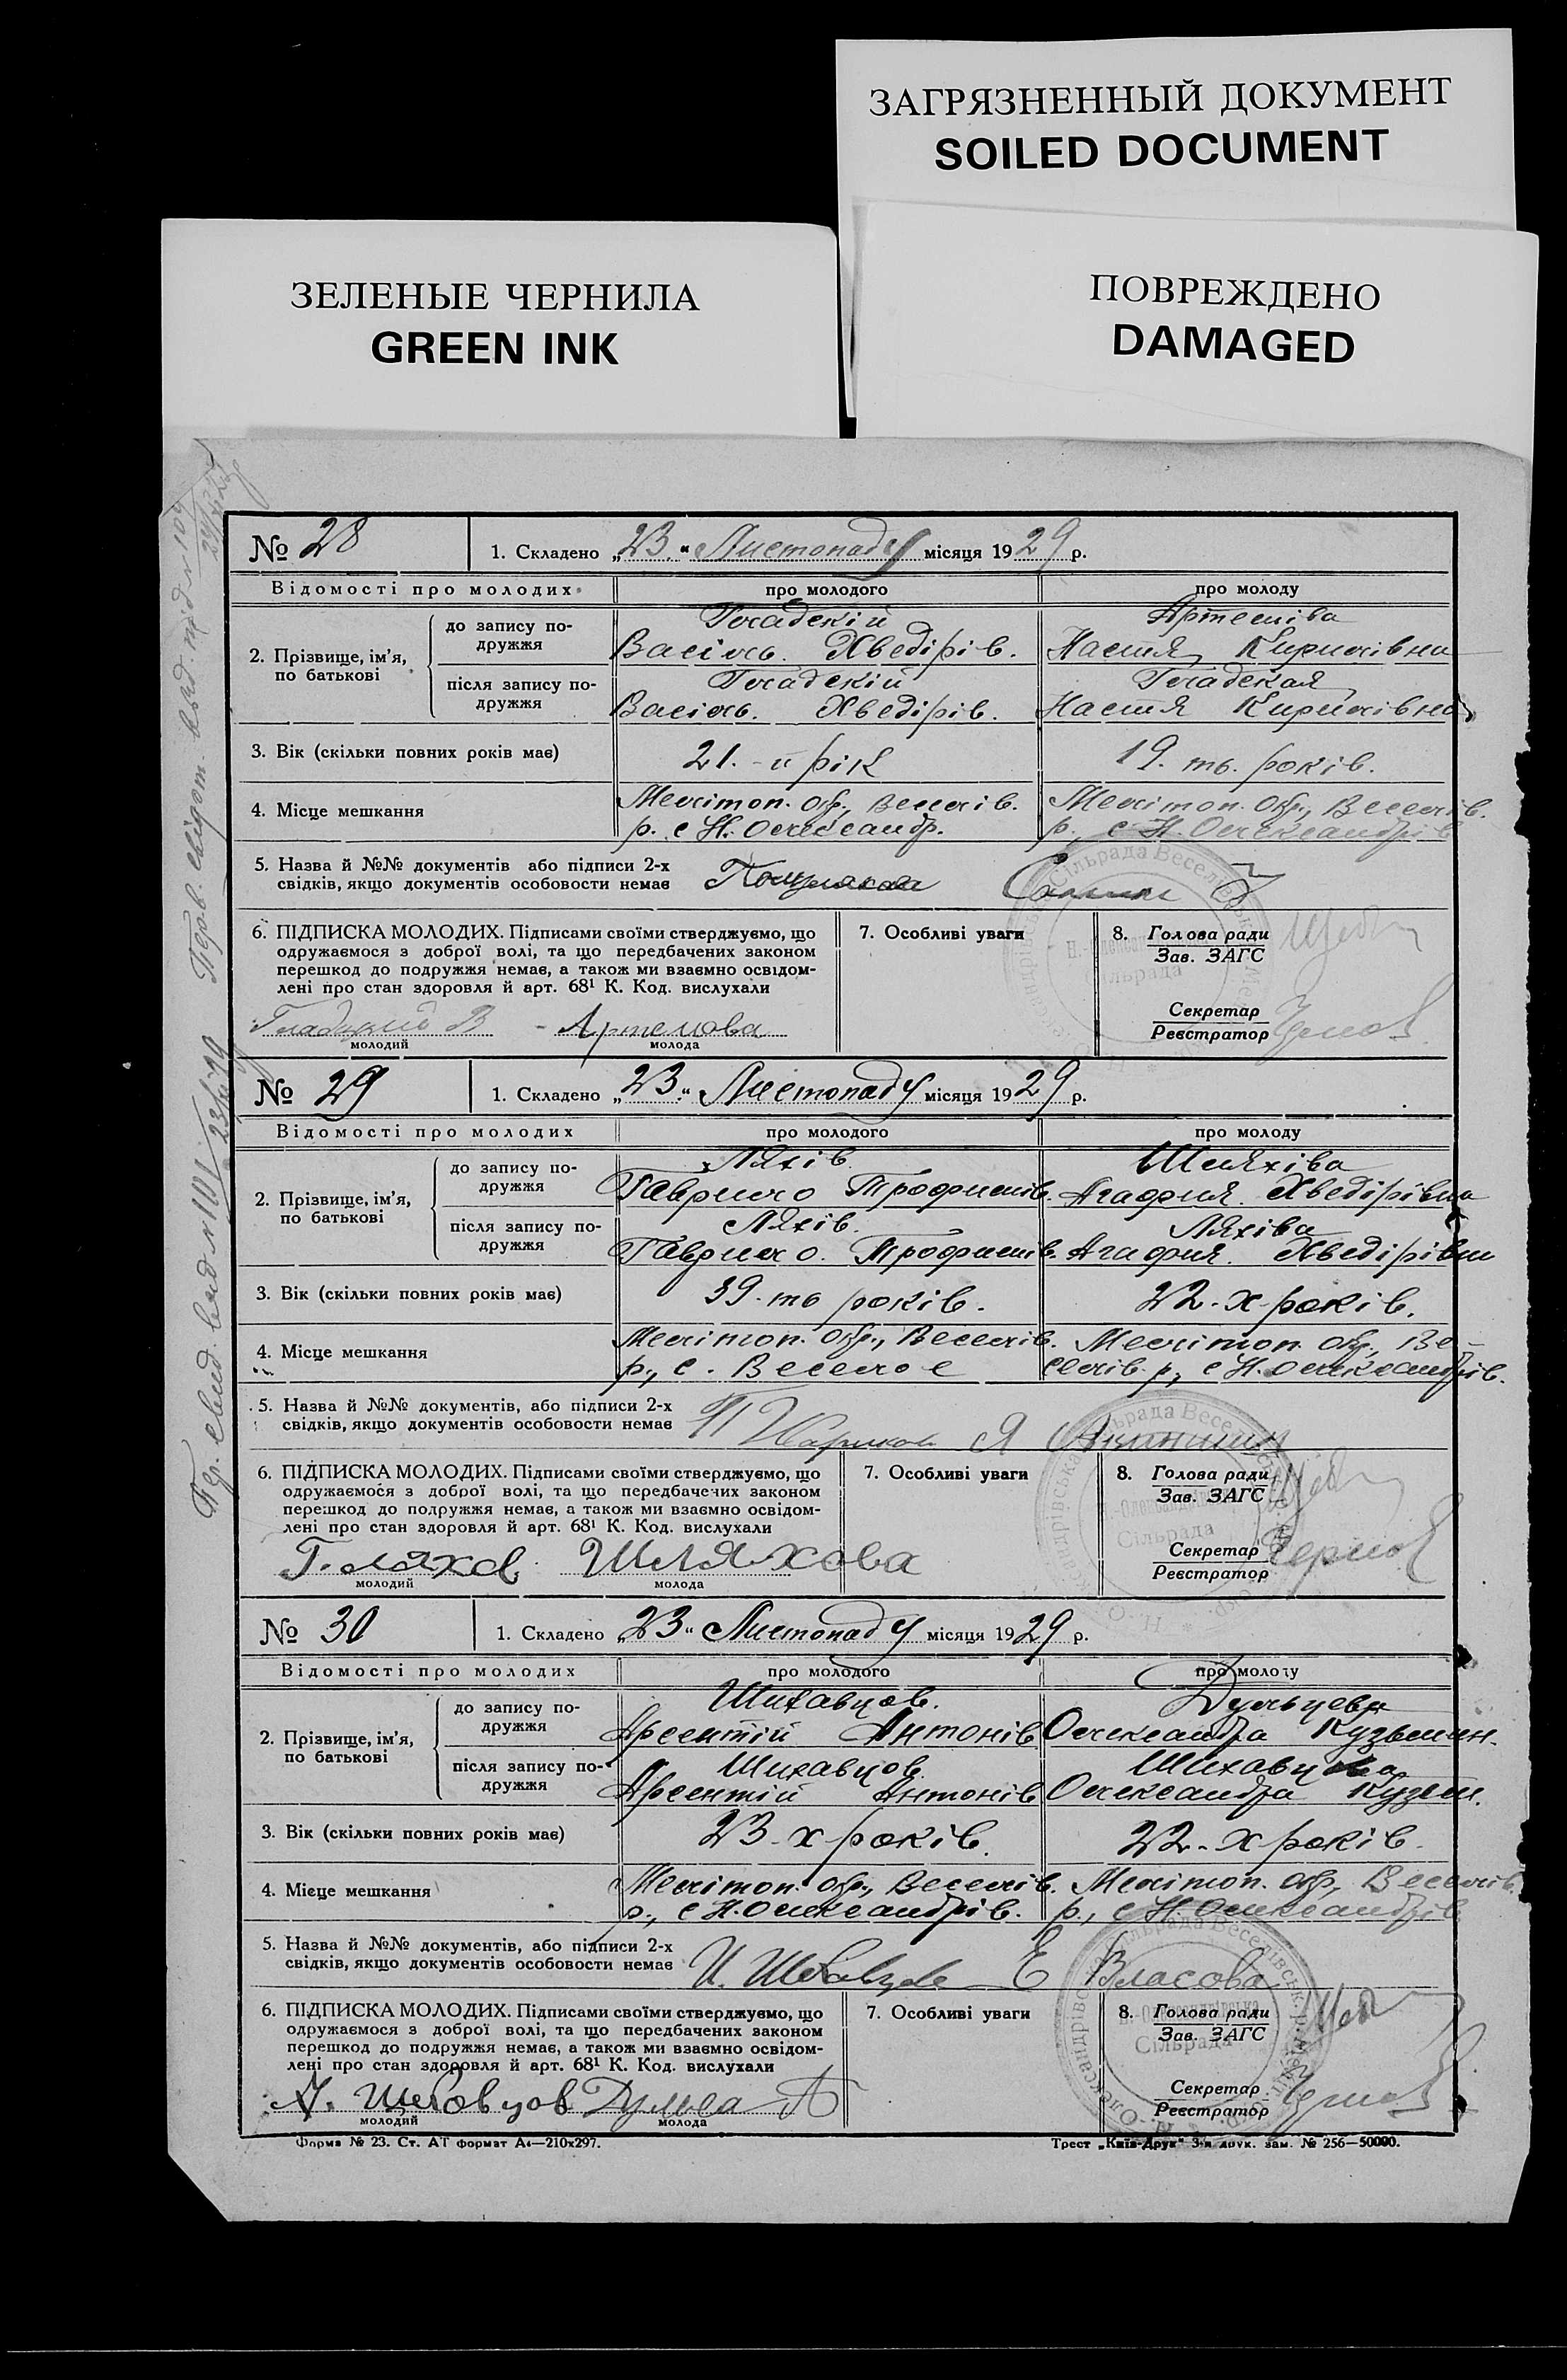 ЗАГРЯЗНЕННЫЙ ДОКУМЕНТ
SOILED DOCUMENT
ЗЕЛЕНЫЕ ЧЕРНИЛА
GREEN INK
ПОВРЕЖДЕНО
DAMAGED
№ 28 1. Складено „23“ Листопаду місяця 1929 р.
Відомості про молодих про молодого про молоду
2. Прізвище, ім’я, по батькові
до запису по-дружжя
Гладскій Артеміва
Василь. Хведірів. Настя Кирилівна
після запису по-дружжя
Гладскій Гладская
Василь. Хведірів. Настя Кирилівна
3. Вік (скільки повних років має) 21.-й рік 19. ть. років.
4. Місце мешкання
Мелітоп. окр., Веселів. Мелітоп. окр., Веселів.
р. с Н. Олександр. р. с Н. Олександрів
5. Назва й №№ документів або підписи 2-х
свідків, якщо документів особовости немає
6. ПІДПИСКА МОЛОДИХ. Підписами своїми стверджуємо, що
одружаємося з доброї волі, та що передбачених законом
перешкод до подружжя немає, а також ми взаємно освідом-
лені про стан здоровля й арт. 68¹ К. Код. вислухали
7. Особливі уваги
8. Голова ради
Зав. ЗАГС
Секретар
Реєстратор
Гладский В - Артемова
молодий молода
№ 29 1. Складено „23“ Листопаду місяця 1929 р.
Відомості про молодих про молодого про молоду
2. Прізвище, ім’я, по батькові
до запису по-дружжя
Ляхів Шляхіва
Гаврило Трофимів. Агафия. Хведірівна
після запису по-дружжя
Ляхів. Ляхіва
Гаврило. Трофимів. Агафия. Хведірівни
3. Вік (скільки повних років має) 39-ть років. 22-х років.
4. Місце мешкання
Мелітоп. окр., Веселів. Мелітоп. окр., Ве-
р., с. Веселое селів. р., с Н. Олександрів.
5. Назва й №№ документів, або підписи 2-х
свідків, якщо документів особовости немає
6. ПІДПИСКА МОЛОДИХ. Підписами своїми стверджуємо, що
одружаємося з доброї волі, та що передбачених законом
перешкод до подружжя немає, а також ми взаємно освідом-
лені про стан здоровля й арт. 68¹ К. Код. вислухали
7. Особливі уваги
8. Голова ради
Зав. ЗАГС
Секретар
Реєстратор
Г. Ляхов Шляхова
молодий молода
№ 30 1. Складено „23“ Листопаду місяця 1929 р.
Відомості про молодих про молодого про молоду
2. Прізвище, ім’я, по батькові
до запису по-дружжя
Шихавцов. Дульцева
Арсентій Антонів Олександра Кузьмин.
після запису по-дружжя
Шихавцов. Шихавцова
Арсентій Антонів Олександра Кузьм.
3. Вік (скільки повних років має) 23-х років. 22-х років.
4. Місце мешкання
Мелітоп. окр., Веселів. Мелітоп. окр., Веселів.
р., с Н. Олександрів. р., с Н. Олександрів
5. Назва й №№ документів, або підписи 2-х
свідків, якщо документів особовости немає Е Власова
6. ПІДПИСКА МОЛОДИХ. Підписами своїми стверджуємо, що
одружаємося з доброї волі, та що передбачених законом
перешкод до подружжя немає, а також ми взаємно освідом-
лені про стан здоровля й арт. 68¹ К. Код. вислухали
7. Особливі уваги
8. Голова ради
Зав. ЗАГС
Секретар
Реєстратор
молодий молода
Форма № 23. Ст. АТ формат А4—210х297. Трест „Київ-Друк“ 3-я друк. зам. № 256—50000.